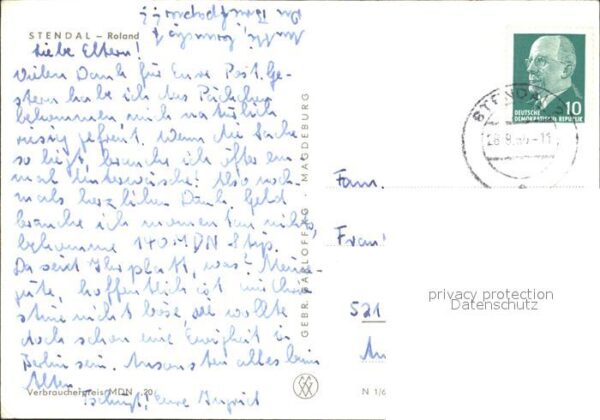 STENDAL – Roland
Liebe Eltern!
Vielen Dank für Eure Post. Ge-
stern habe ich das Päckchen
bekommen, mich natürlich
riesig gefreut. Wenn die Sache
so liegt, brauche ich öfter ein-
mal Unterwäsche! Also noch-
mals herzlichen Dank. Geld
brauche ich momentan nicht,
bekomme 140 MDN Stip.
Da seid Ihr platt, was? Meine
gute, hoffentlich ist mir Chri-
stine nicht böse, sie wollte
doch schon eine Ewigkeit in
Berlin sein. Ansonsten alles beim
Alten.
Tschüß, Eure Ingrid
Verbraucherpreis MDN -,20
GEBR. GARLOFF KG · MAGDEBURG
N 1/6
STENDAL
28.9.-11
10
DEUTSCHE
DEMOKRATISCHE REPUBLIK
Fam.
521
privacy protection
Datenschutz